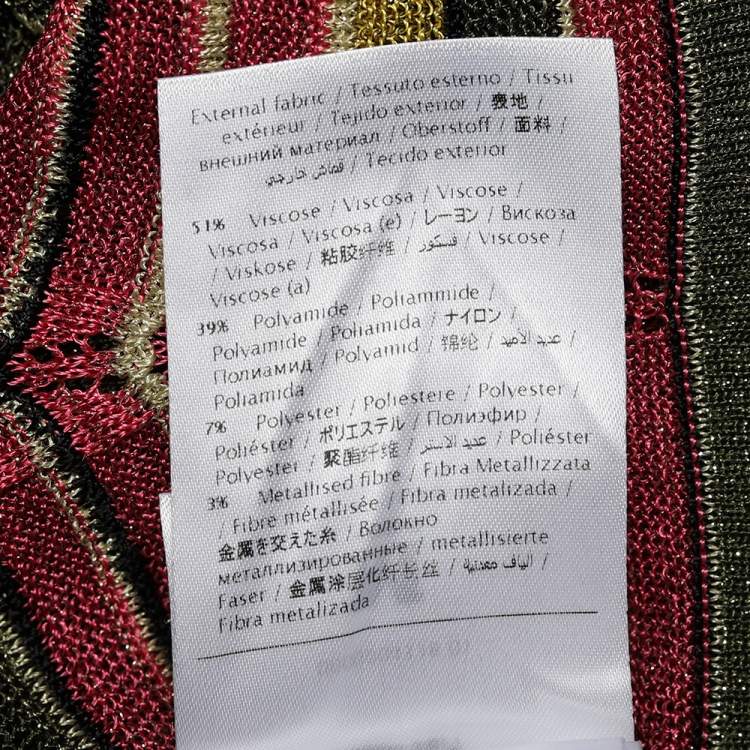 External fabric / Tessuto esterno / Tissu
extérieur / Tejido exterior / 表地 /
внешний материал / Oberstoff / 面料 /
قماش خارجي / Tecido exterior
51% Viscose / Viscosa / Viscose /
Viscosa / Viscosa (e) / レーヨン / Вискоза
/ Viskose / 粘胶纤维 / فسكور / Viscose /
Viscose (a)
39% Polyamide / Poliammide /
Polyamide / Poliamida / ナイロン /
Полиамид / Polyamid / 锦纶 / عديد الأميد /
Poliamida
7% Polyester / Poliestere / Polyester /
Poliéster / ポリエステル / Полиэфир /
Polyester / 聚酯纤维 / عديد الاستر / Poliéster
3% Metallised fibre / Fibra Metallizzata
/ Fibre métallisée / Fibra metalizada /
金属を交えた糸 / Волокно
металлизированные / metallisierte
Faser / 金属涂层化纤长丝 / الياف معدنية /
Fibra metalizada